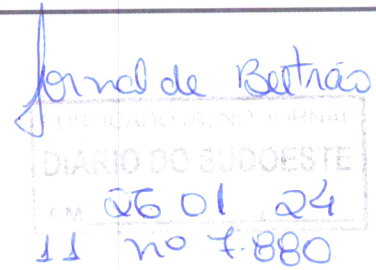 Jornal de Beltrão
PUBLICADO NO JORNAL
DIÁRIO DO SUDOESTE
EM 26 01 24
11 nº 7.880